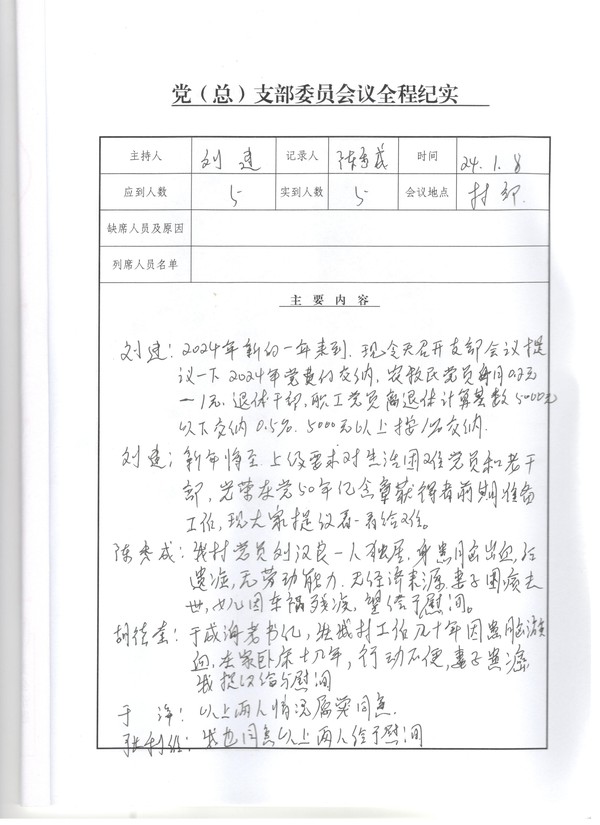 党（总）支部委员会议全程纪实
主持人 刘建 记录人 陈秀成 时间 24.1.8
应到人数 5 实到人数 5 会议地点 村部
缺席人员及原因
列席人员名单
主要内容
刘建：2024年新的一年来到，现今天召开支部会议提
议一下2024年党费的交纳，农牧民党员每月0.2元
一1元，退休干部，职工党员离退休计算基数5000元
以下交纳0.5%，5000元以上按1%交纳.
刘建；新年将至，上级要求对生活困难党员和老干
部，光荣在党50年纪念章获得者前期准备
工作，现大家提议看一看给谁。
陈秀成：我村党员刘汉良一人独居，身患脑出血，后
遗症，无劳动能力，无经济来源，妻子因病去
世，女儿因车祸残疾，望给予慰问。
于成海老书记，在我村工作几十年因患脑溢
血，在家卧床十几年，行动不便，妻子患癌，
我提议给与慰问
于净：以上两人情况属实同意.
我也同意以上两人给予慰问